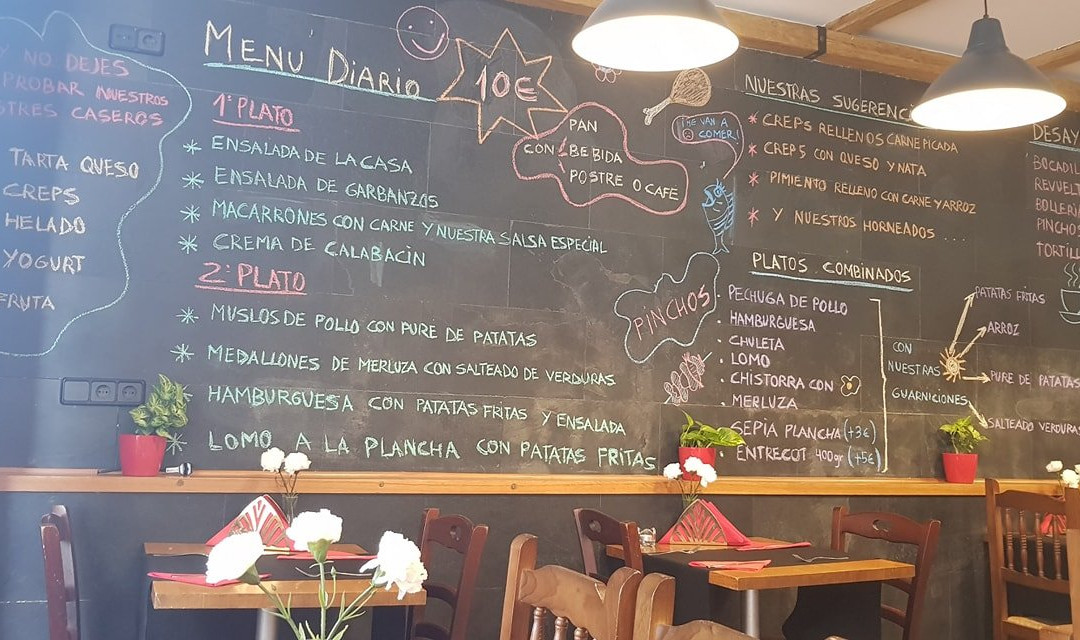 NO DEJES
PROBAR NUESTROS
CASEROS
TARTA QUESO
CREPS
HELADO
YOGURT
FRUTA
MENU DIARIO
10€
1º PLATO
ENSALADA DE LA CASA
ENSALADA DE GARBANZOS
MACARRONES CON CARNE Y NUESTRA SALSA ESPECIAL
CREMA DE CALABACÍN
2º PLATO
MUSLOS DE POLLO CON PURE DE PATATAS
MEDALLONES DE MERLUZA CON SALTEADO DE VERDURAS
HAMBURGUESA CON PATATAS FRITAS Y ENSALADA
LOMO A LA PLANCHA CON PATATAS FRITAS
PAN
CON BEBIDA
POSTRE O CAFE
¡ME VAN A
COMER!
PINCHOS
NUESTRAS
CREPS RELLENOS CARNE PICADA
CREPS CON QUESO Y NATA
PIMIENTO RELLENO CON CARNE Y ARROZ
Y NUESTROS HORNEADOS ....
PLATOS COMBINADOS
PECHUGA DE POLLO
HAMBURGUESA
CHULETA
LOMO
CHISTORRA CON
MERLUZA
SEPIA PLANCHA (+3€)
ENTRECOT 400gr (+5€)
CON
NUESTRAS
GUARNICIONES
PATATAS FRITAS
ARROZ
PURE DE PATATAS
SALTEADO VERDURAS
PINCHOS